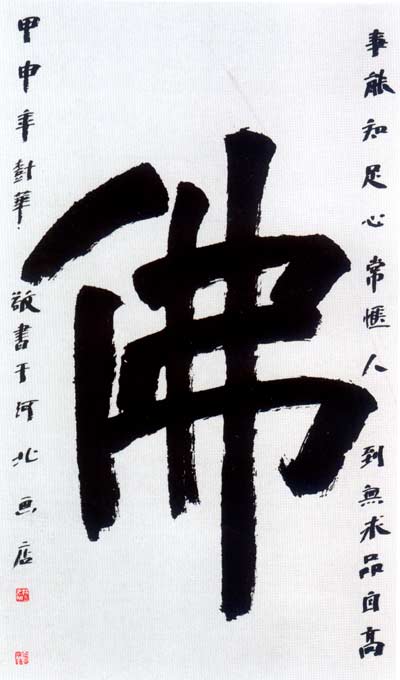 事能知足心常惬人到無求品自高
佛
甲申年封華敬書于河北画店